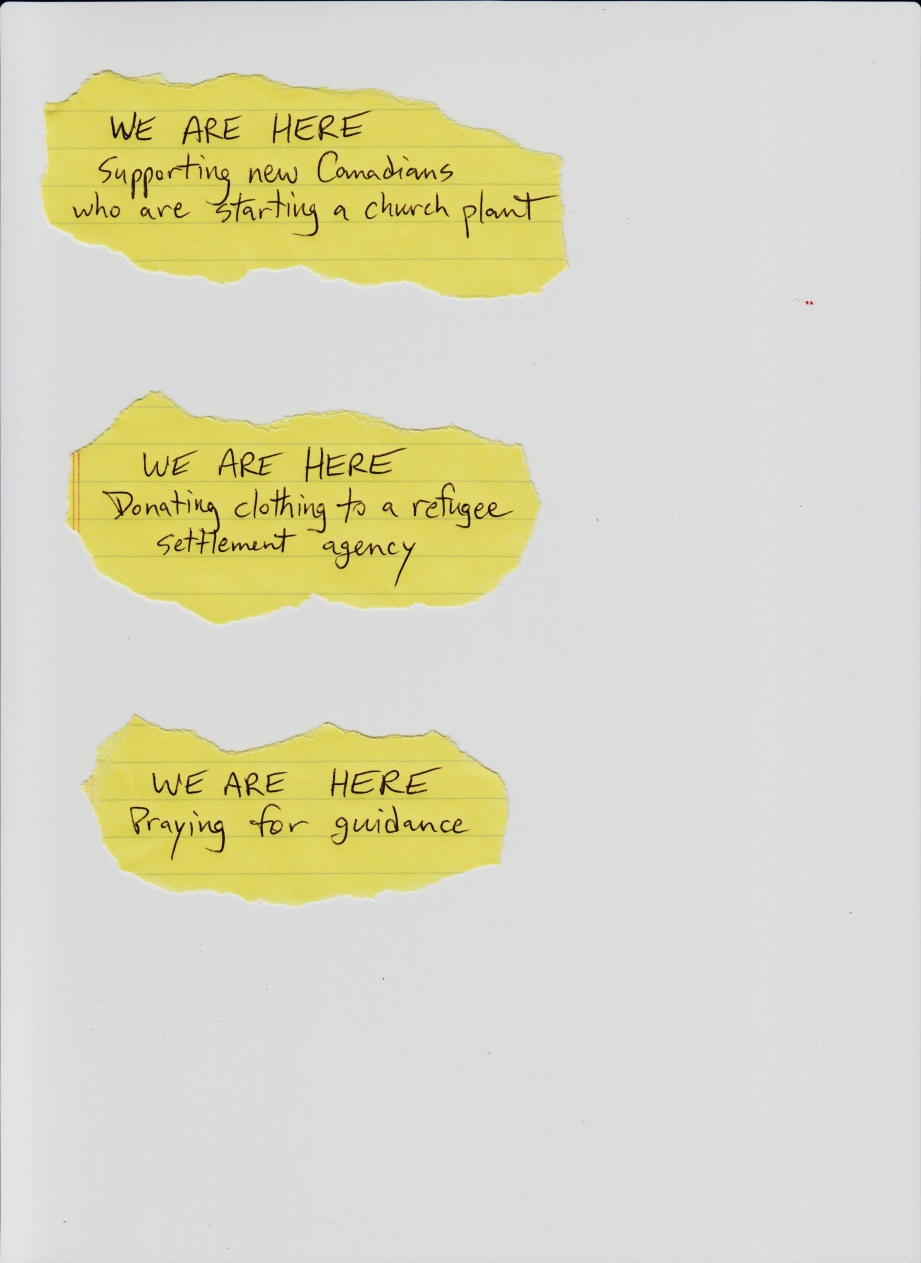 WE ARE HERE
Supporting new Canadians
who are starting a church plant
WE ARE HERE
Donating clothing to a refugee
settlement agency
WE ARE HERE
Praying for guidance